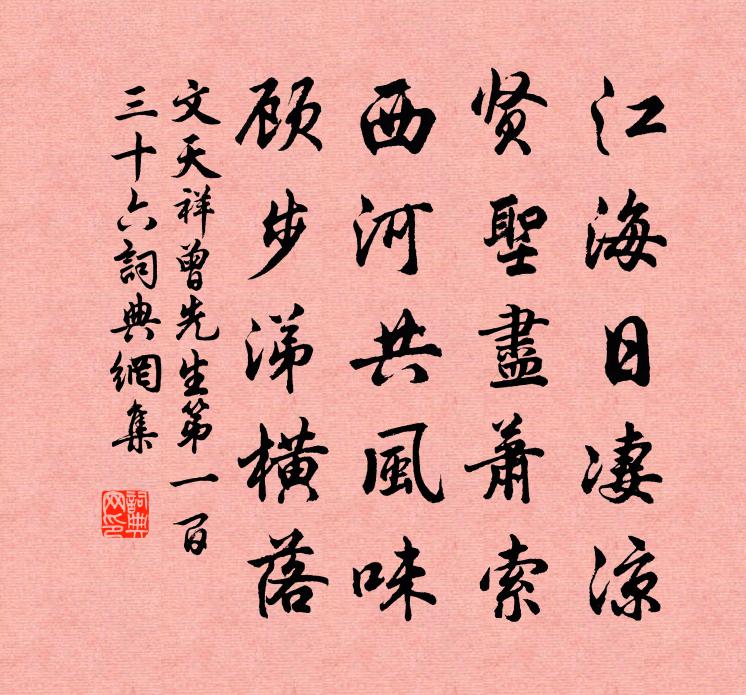 江海日凄凉
贤聖盡蕭索
西河共風味
顾步涕橫落
文天祥曾先生第一百
三十六詞典網集
詞典
网印